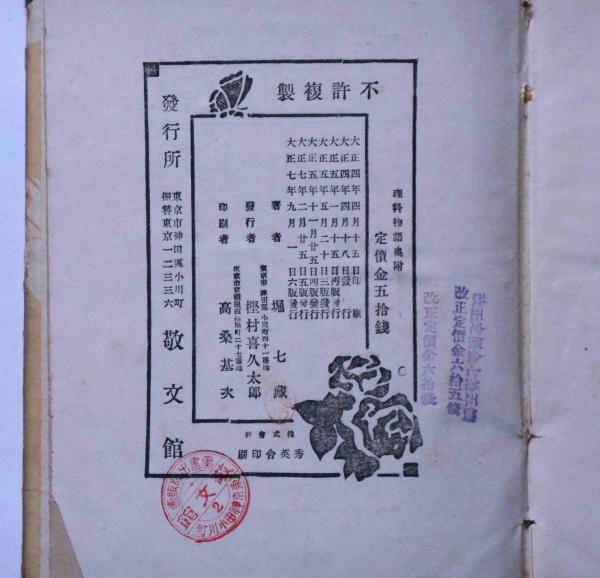 不許複製
理科物語奥附
定價金五拾錢
大正四年四月十五日印刷
大正四年四月十八日發行
大正五年一月十五日再版發行
大正五年五月二十日三版發行
大正五年十一月廿五日四版發行
大正七年二月廿五日五版發行
大正七年九月一日六版發行
著者 堀七藏
東京市神田區小川町四十一番地
發行者 樫村喜久太郎
印刷者 高桑基次
株式會社
秀英舎印刷
發行所
東京市神田區小川町
振替東京一二三三六
敬文館
改正定價金六拾五錢
改正定價金六拾錢
敬文館